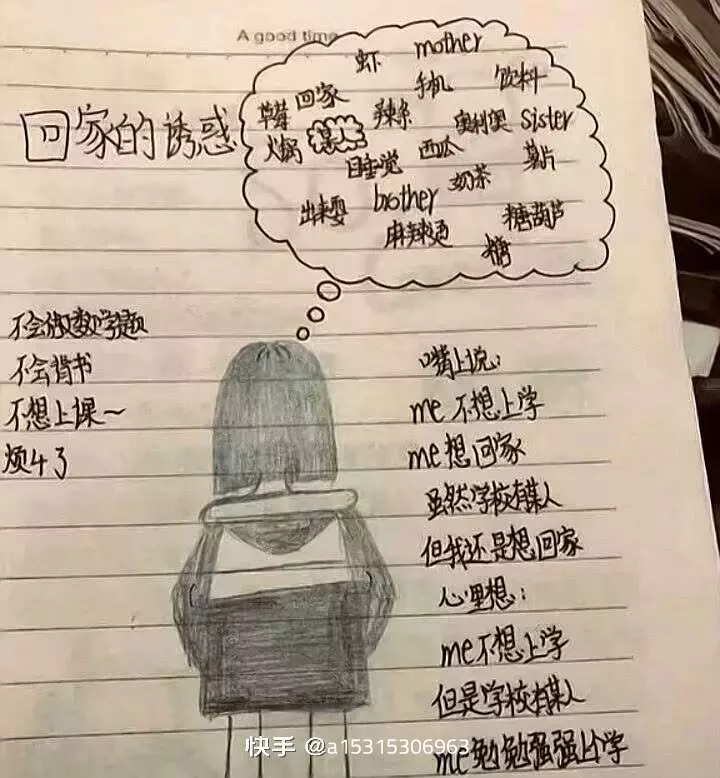 A good time
回家的诱惑
虾 mother
手机 饮料
草莓 回家 辣条 奥利奥 sister
火锅 某人 西瓜 薯片
睡觉 奶茶
出来耍 brother 糖葫芦
麻辣烫 糖
不会做数学题
不会背书
不想上课～
烦4了
嘴上说：
me 不想上学
me 想回家
虽然学校有某人
但我还是想回家
心里想：
me 不想上学
但是学校有某人
me 勉勉强强上个学
快手 @a15315306963